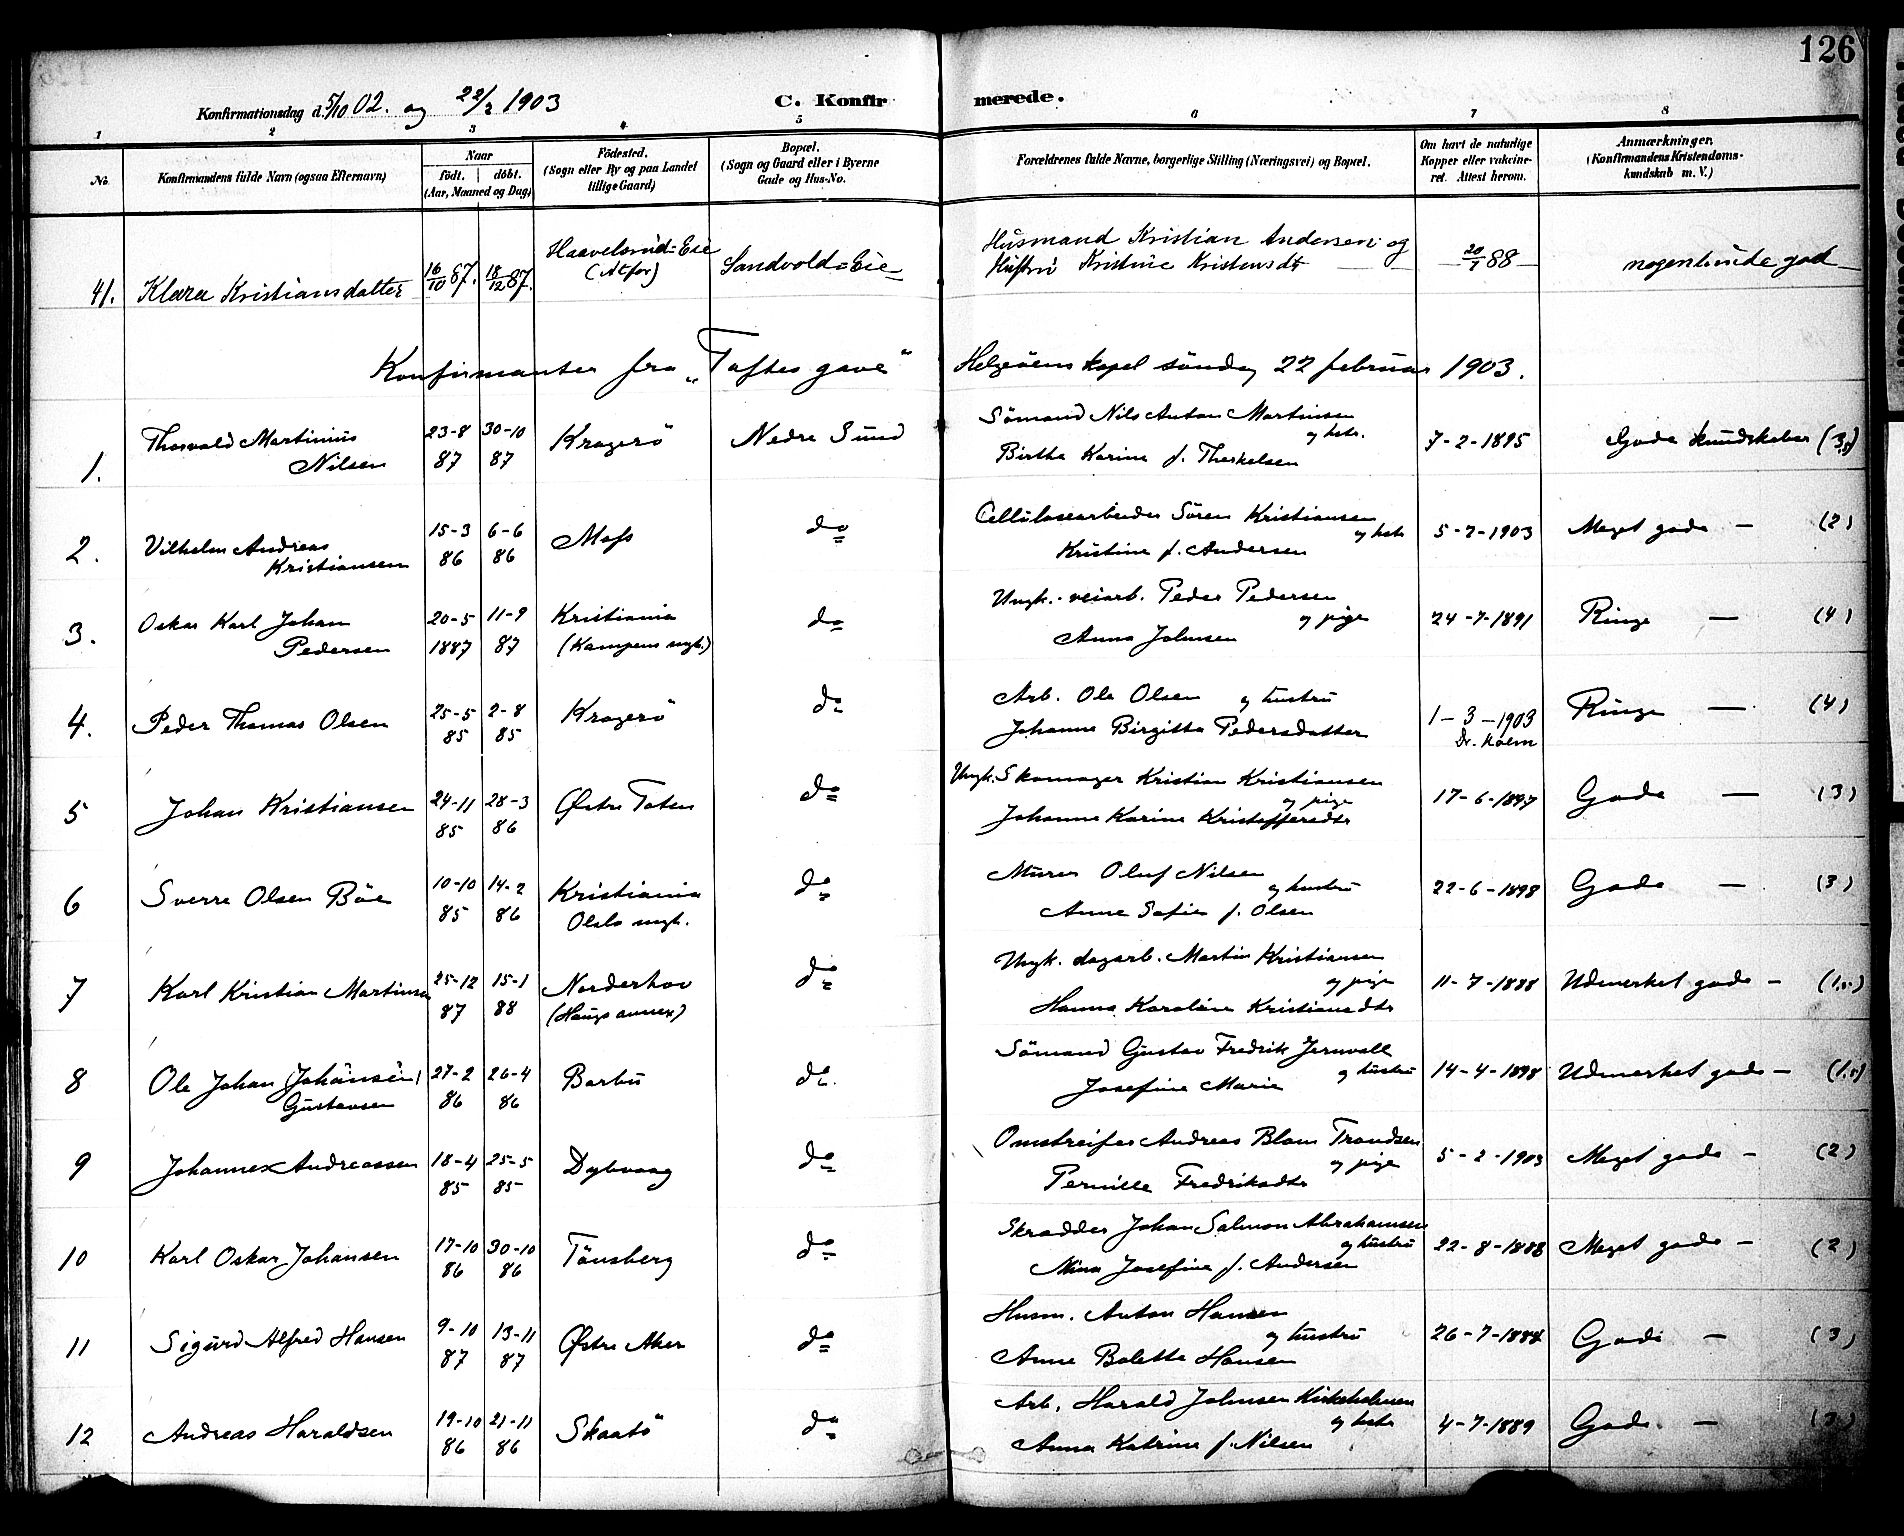 126
Konfirmationsdag d. 5/10 02. og 22/2 1903
C. Konfirmerede.
1 2 3 4 5 6 7 8
No. Konfirmandens fulde Navn (ogsaa Efternavn) Naar født. døbt. (Aar, Maaned og Dag) Fødested. (Sogn eller By og paa Landet tillige Gaard) Bopæl. (Sogn og Gaard eller i Byerne Gade og Hus-No. Forældrenes fulde Navne, borgerlige Stilling (Næringsvei) og Bopæl. Om havt de naturlige Kopper eller vakcineret. Attest herom. Anmærkninger, (Konfirmandens Kristendomskundskab m. V.)
41. Klara Kristiansdatter 16/10 87. 18/12 87. Haavelsrud-Eie (Atfor) Sandvold-Eie Husmand Kristian Andersen og Hustru Kristine Kristensdt 20/1 88 nogenlunde god
Konfirmanter fra "Toftes gave" Helgøens kapel søndag 22 februar 1903.
1. Thorvald Martinius Nilsen 23-8 87 30-10 87 Kragerö Nedre Sund Sömand Nils Anton Martinsen og hstr. Birthe Karine f. Therkelsen 7-2-1895 Gode kundskaber (3,5)
2. Vilhelm Andreas Kristiansen 15-3 86 6-6 86 Moss do Cellulosearbeider Sören Kristiansen og hstr Kristine f. Andersen 5-2-1903 Meget gode — (2)
3. Oskar Karl Johan Pedersen 20-5 1887 11-9 87 Kristiania (Kampens mgh.) do Ungk. veiarb. Peder Pedersen og pige Anna Johnsen 24-7-1891 Ringe — (4)
4. Peder Thomas Olsen 25-5 85 2-8 85 Kragerö do Arb. Ole Olsen og hustru Johanne Birgitte Pedersdatter 1-3-1903 Dr. Holm Ringe — (4)
5 Johan Kristiansen 24-11 85 28-3 86 Østre Toten do Ungk. Skomager Kristian Kristiansen og pige Johanne Karine Kristoffersdtr 17-6-1897 Gode — (3)
6 Sverre Olsen Böe 10-10 85 14-2 86 Kristiania Oslo mgh. do Murer Oluf Nilsen og hustru Anne Sofie f. Olsen 22-6-1898 Gode — (3)
7 Karl Kristian Martinsen 25-12 87 15-1 88 Norderhov (Haugs annex) do Ungk. dagarb. Martin Kristiansen og pige Hanna Karoline Kristiansdtr 11-7-1888 Udmerket gode — (1,5)
8 Ole Johan (Johansen) Gustavsen 27-2 86 26-4 86 Barbu do Sömand Gustav Fredrik Jernvall og hustru Josefine Marie 14-4-1898 Udmerket gode — (1,5)
9 Johannes Andreassen 18-4 85 25-5 85 Dybvaag do Omstreifer Andreas Blom Trondsen og pige Pernille Fredriksdtr 5-2-1903 Meget gode — (2)
10 Karl Oskar Johansen 17-10 86 30-10 86 Tönsberg do Skrædder Johan Salmon Abrahamsen og hustru Mina Josefine f. Andersen 22-8-1888 Meget gode — (2)
11 Sigurd Alfred Hansen 9-10 87 13-11 87 Østre Aker do Husm. Anton Hansen og hustru Anne Bolette Hansen 26-7-1884 Gode — (3)
12 Andreas Haraldsen 19-10 86 21-11 86 Skaatö do Arb. Harald Johnsen Kirkeholmen og hstr Anna Katrine f. Nilsen 4-7-1889 Gode. — (3)